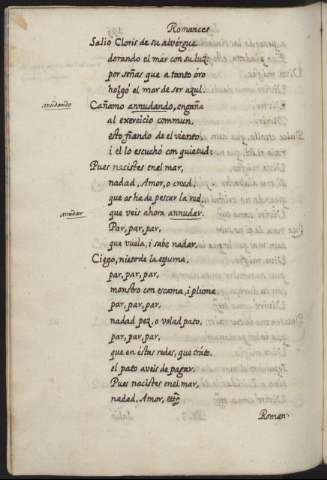 Romances
Salio Cloris de su alvergue
dorando el mar con su luz,
por señas que a tanto oro
holgó el mar de ser azul.
anudando
Cañamo annudando, engaña
al exercicio commun,
esto fiando de el viento,
i el lo escuchó con quietud:
Pues nacistes en el mar,
nadad, Amor, o creed,
que os ha de pescar la red,
anudar
que veis ahora annudar.
Par, par, par,
que vuela, i sabe nadar.
Ciego, nieto de la espuma,
par, par, par,
monstro con escama, i pluma
par, par, par,
nadad pez, o volad pato,
par, par, par,
que en estas redes, que trato,
el pato aveis de pagar.
Pues nacistes en el mar,
nadad, Amor, etc.
Roman-